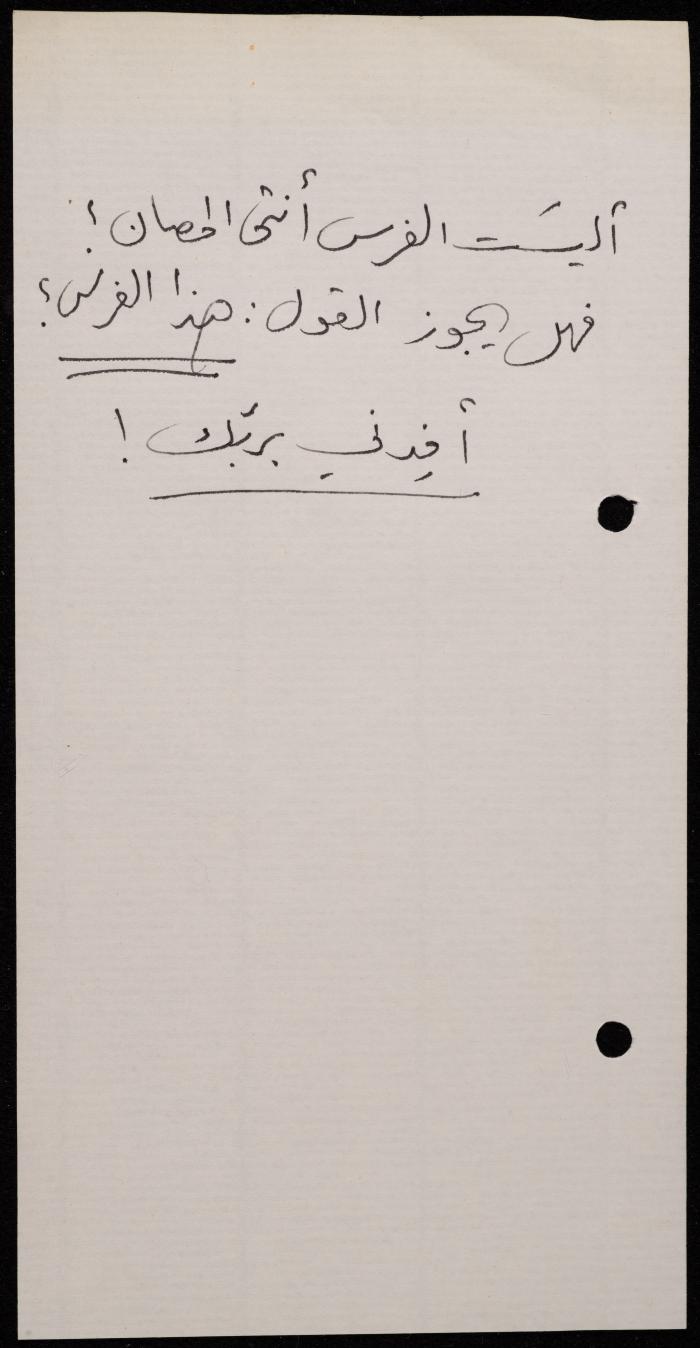 أليسَت الفرس أنثى الحصان؟
فهل يجوز القول: هذا الفرس؟
أفِدني بربّك!